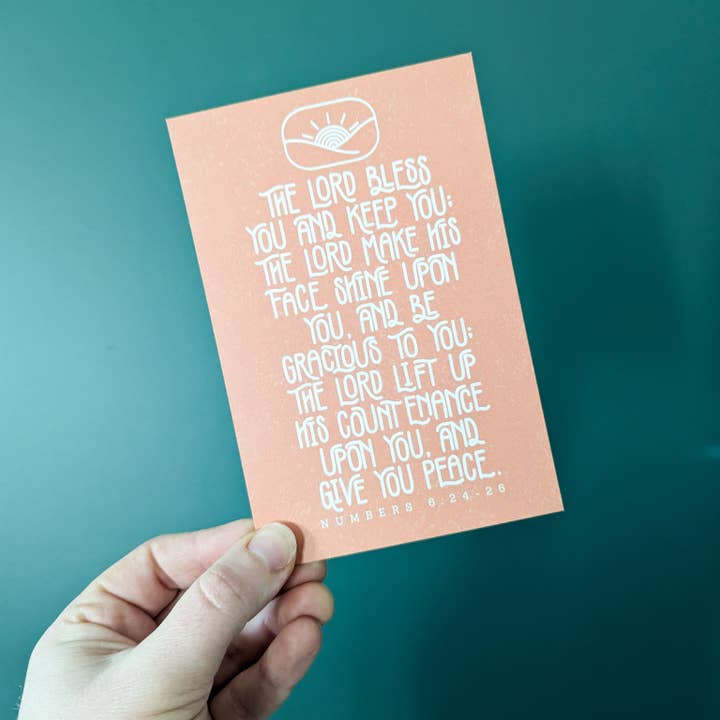 THE LORD BLESS
YOU AND KEEP YOU;
THE LORD MAKE HIS
FACE SHINE UPON
YOU, AND BE
GRACIOUS TO YOU;
THE LORD LIFT UP
HIS COUNTENANCE
UPON YOU, AND
GIVE YOU PEACE.
NUMBERS 6:24-26